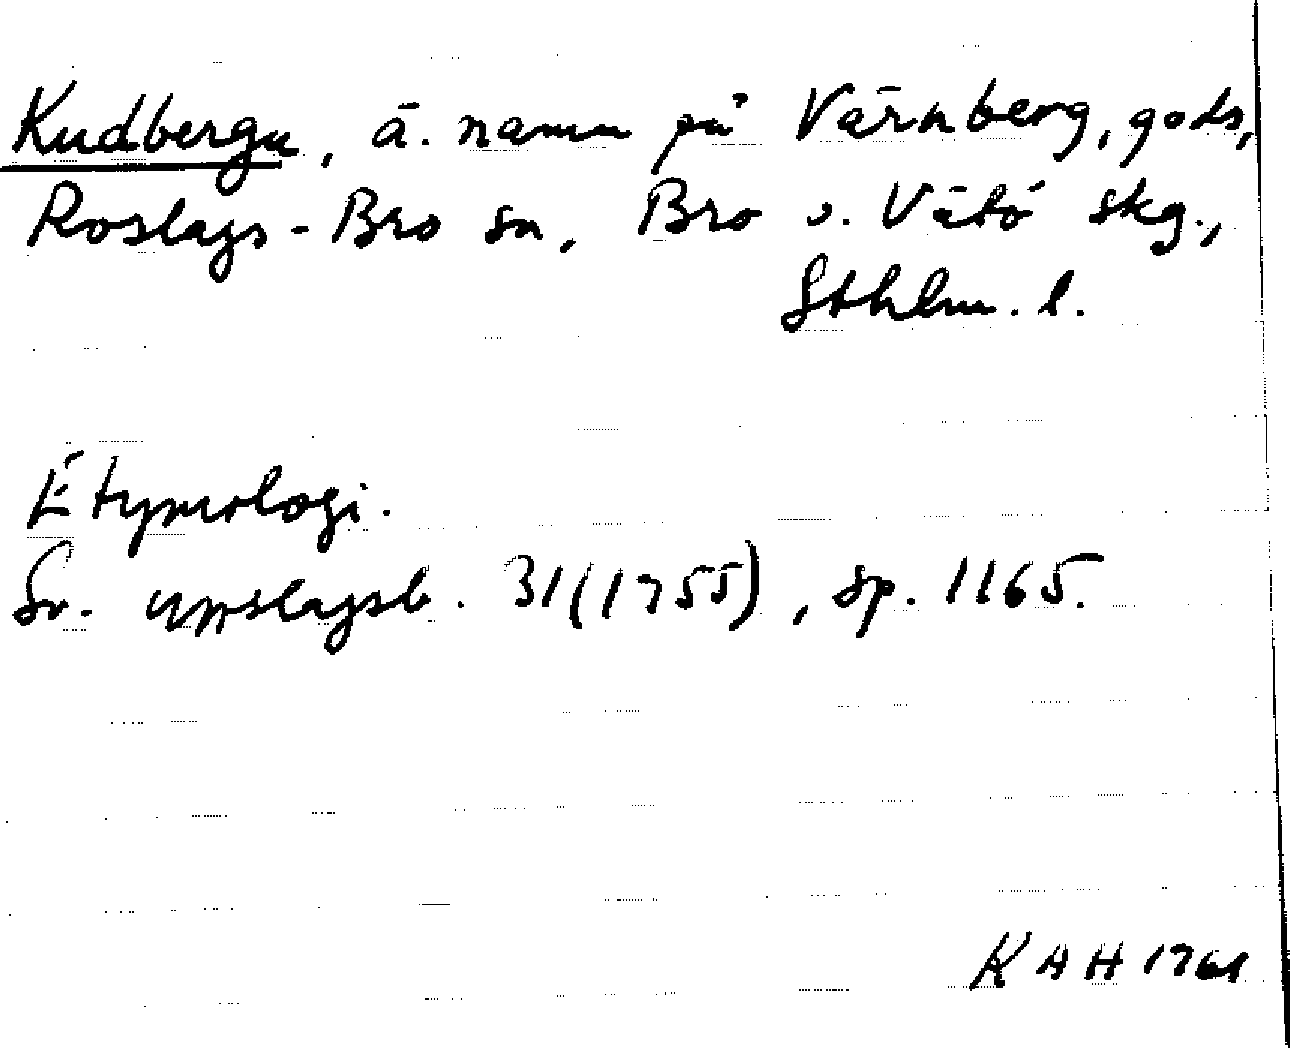 Kudberga, ä. namn på Värnberg, gods,
Roslags-Bro sn, Bro o. Vätö skg.,
Sthlm. l.
Etymologi.
Sv. uppslagsb. 31 (1955), sp. 1165.
KAH 1961